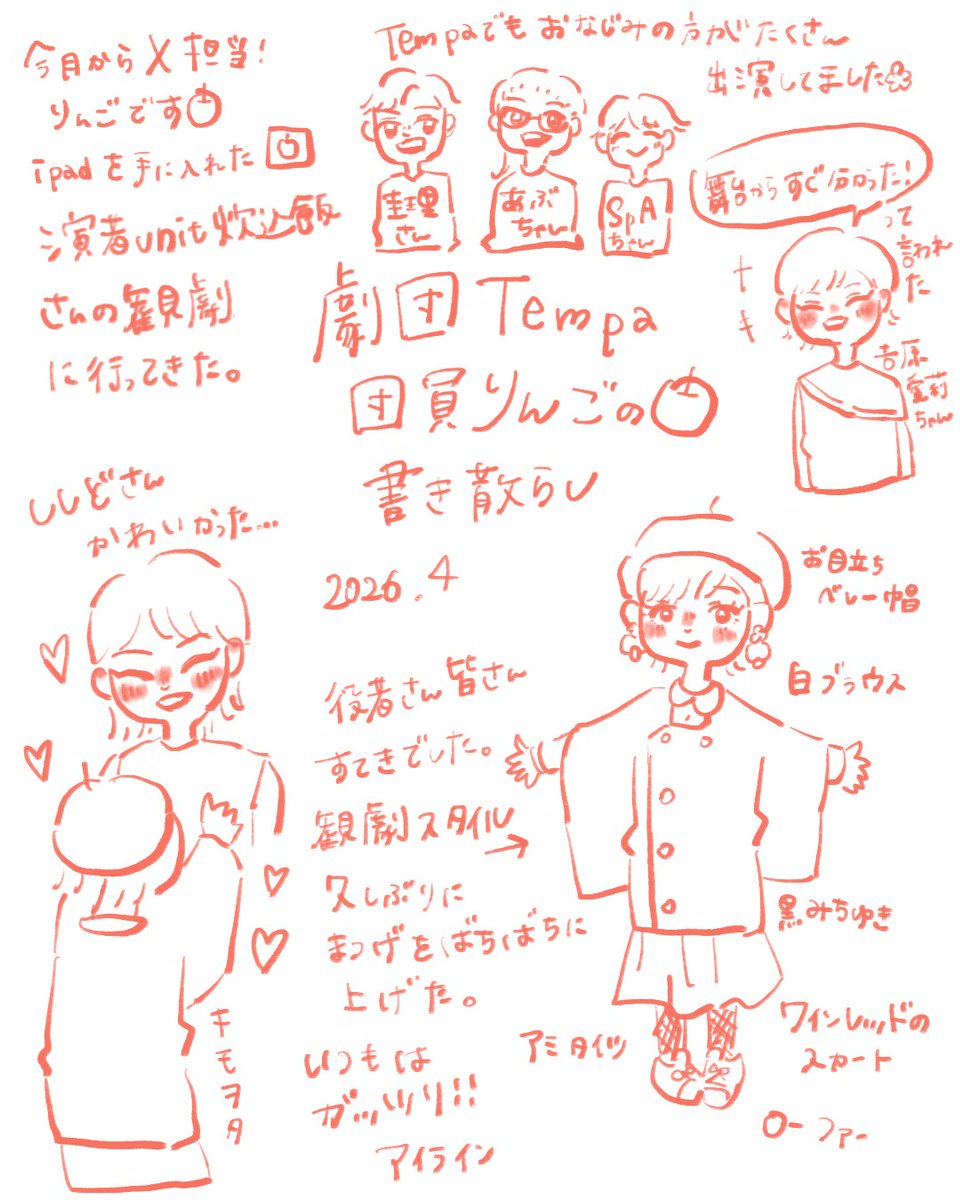 今月からX担当!
りんごです
ipadを手に入れた
演者unit炊込飯
さんの観劇
に行ってきた。
Tempaでもおなじみの方がたくさん
出演してました
圭理
さん
あぶ
ちゃん
SpA
ちゃん
舞台からすぐ分かった!
って
言われ
た
吉原
蜜莉
ちゃん
劇団Tempa
団員りんごの
書き散らし
2026.4
ししどさん
かわいかった…
キモヲタ
役者さん皆さん
すてきでした。
観劇スタイル→
久しぶりに
まつげをばちばちに
上げた。
いつもは
ガッツリ!!
アイライン
お目立ち
ベレー帽
白ブラウス
黒みちゆき
ワインレッドの
スカート
アミタイツ
ローファー